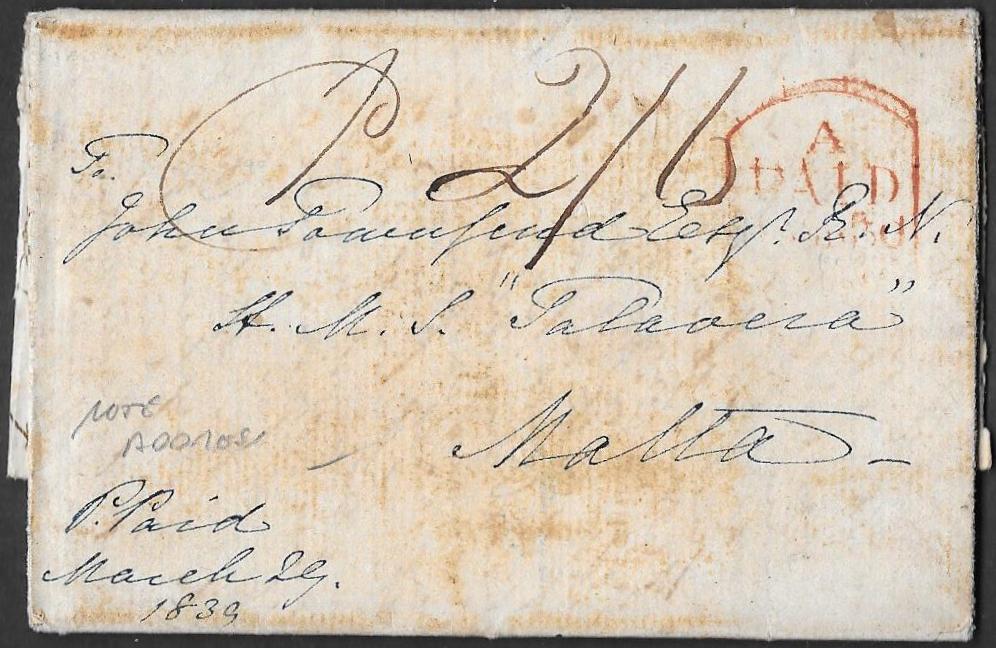 P 2/6
A
PAID
To
John Townsend Esqr. R. N.
H. M. S. "Talavera"
Malta
NOTE
P. Paid
March 29.
1839